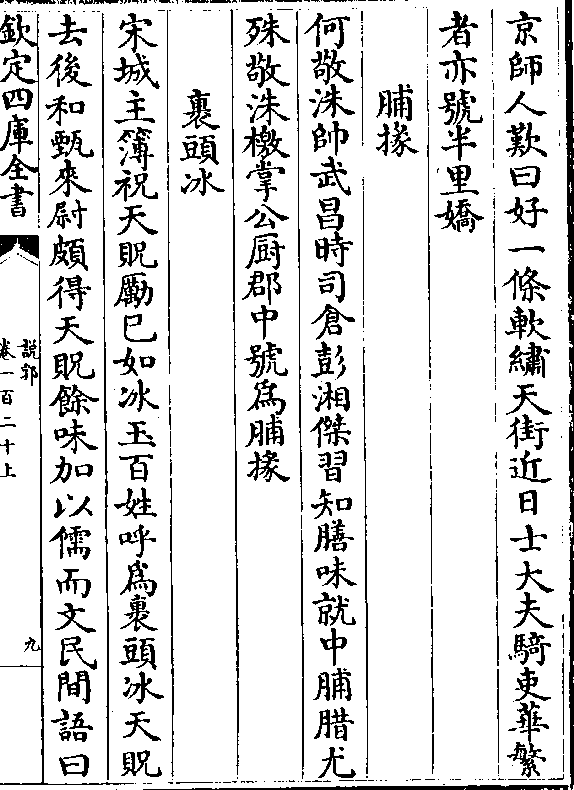 京師人歎曰好一條軟繡天街近日士大夫騎吏華繁
者亦號半里嬌
脯掾
何敬洙帥武昌時司倉彭湘傑習知膳味就中脯腊尤
殊敬洙檄掌公厨郡中號為脯掾
裹頭冰
宋城主簿祝天貺勵已如冰玉百姓呼為裹頭冰天貺
去後和甄來尉頗得天貺餘味加以儒而文民間語曰
欽定四庫全書
說郛
卷一百二十上
九